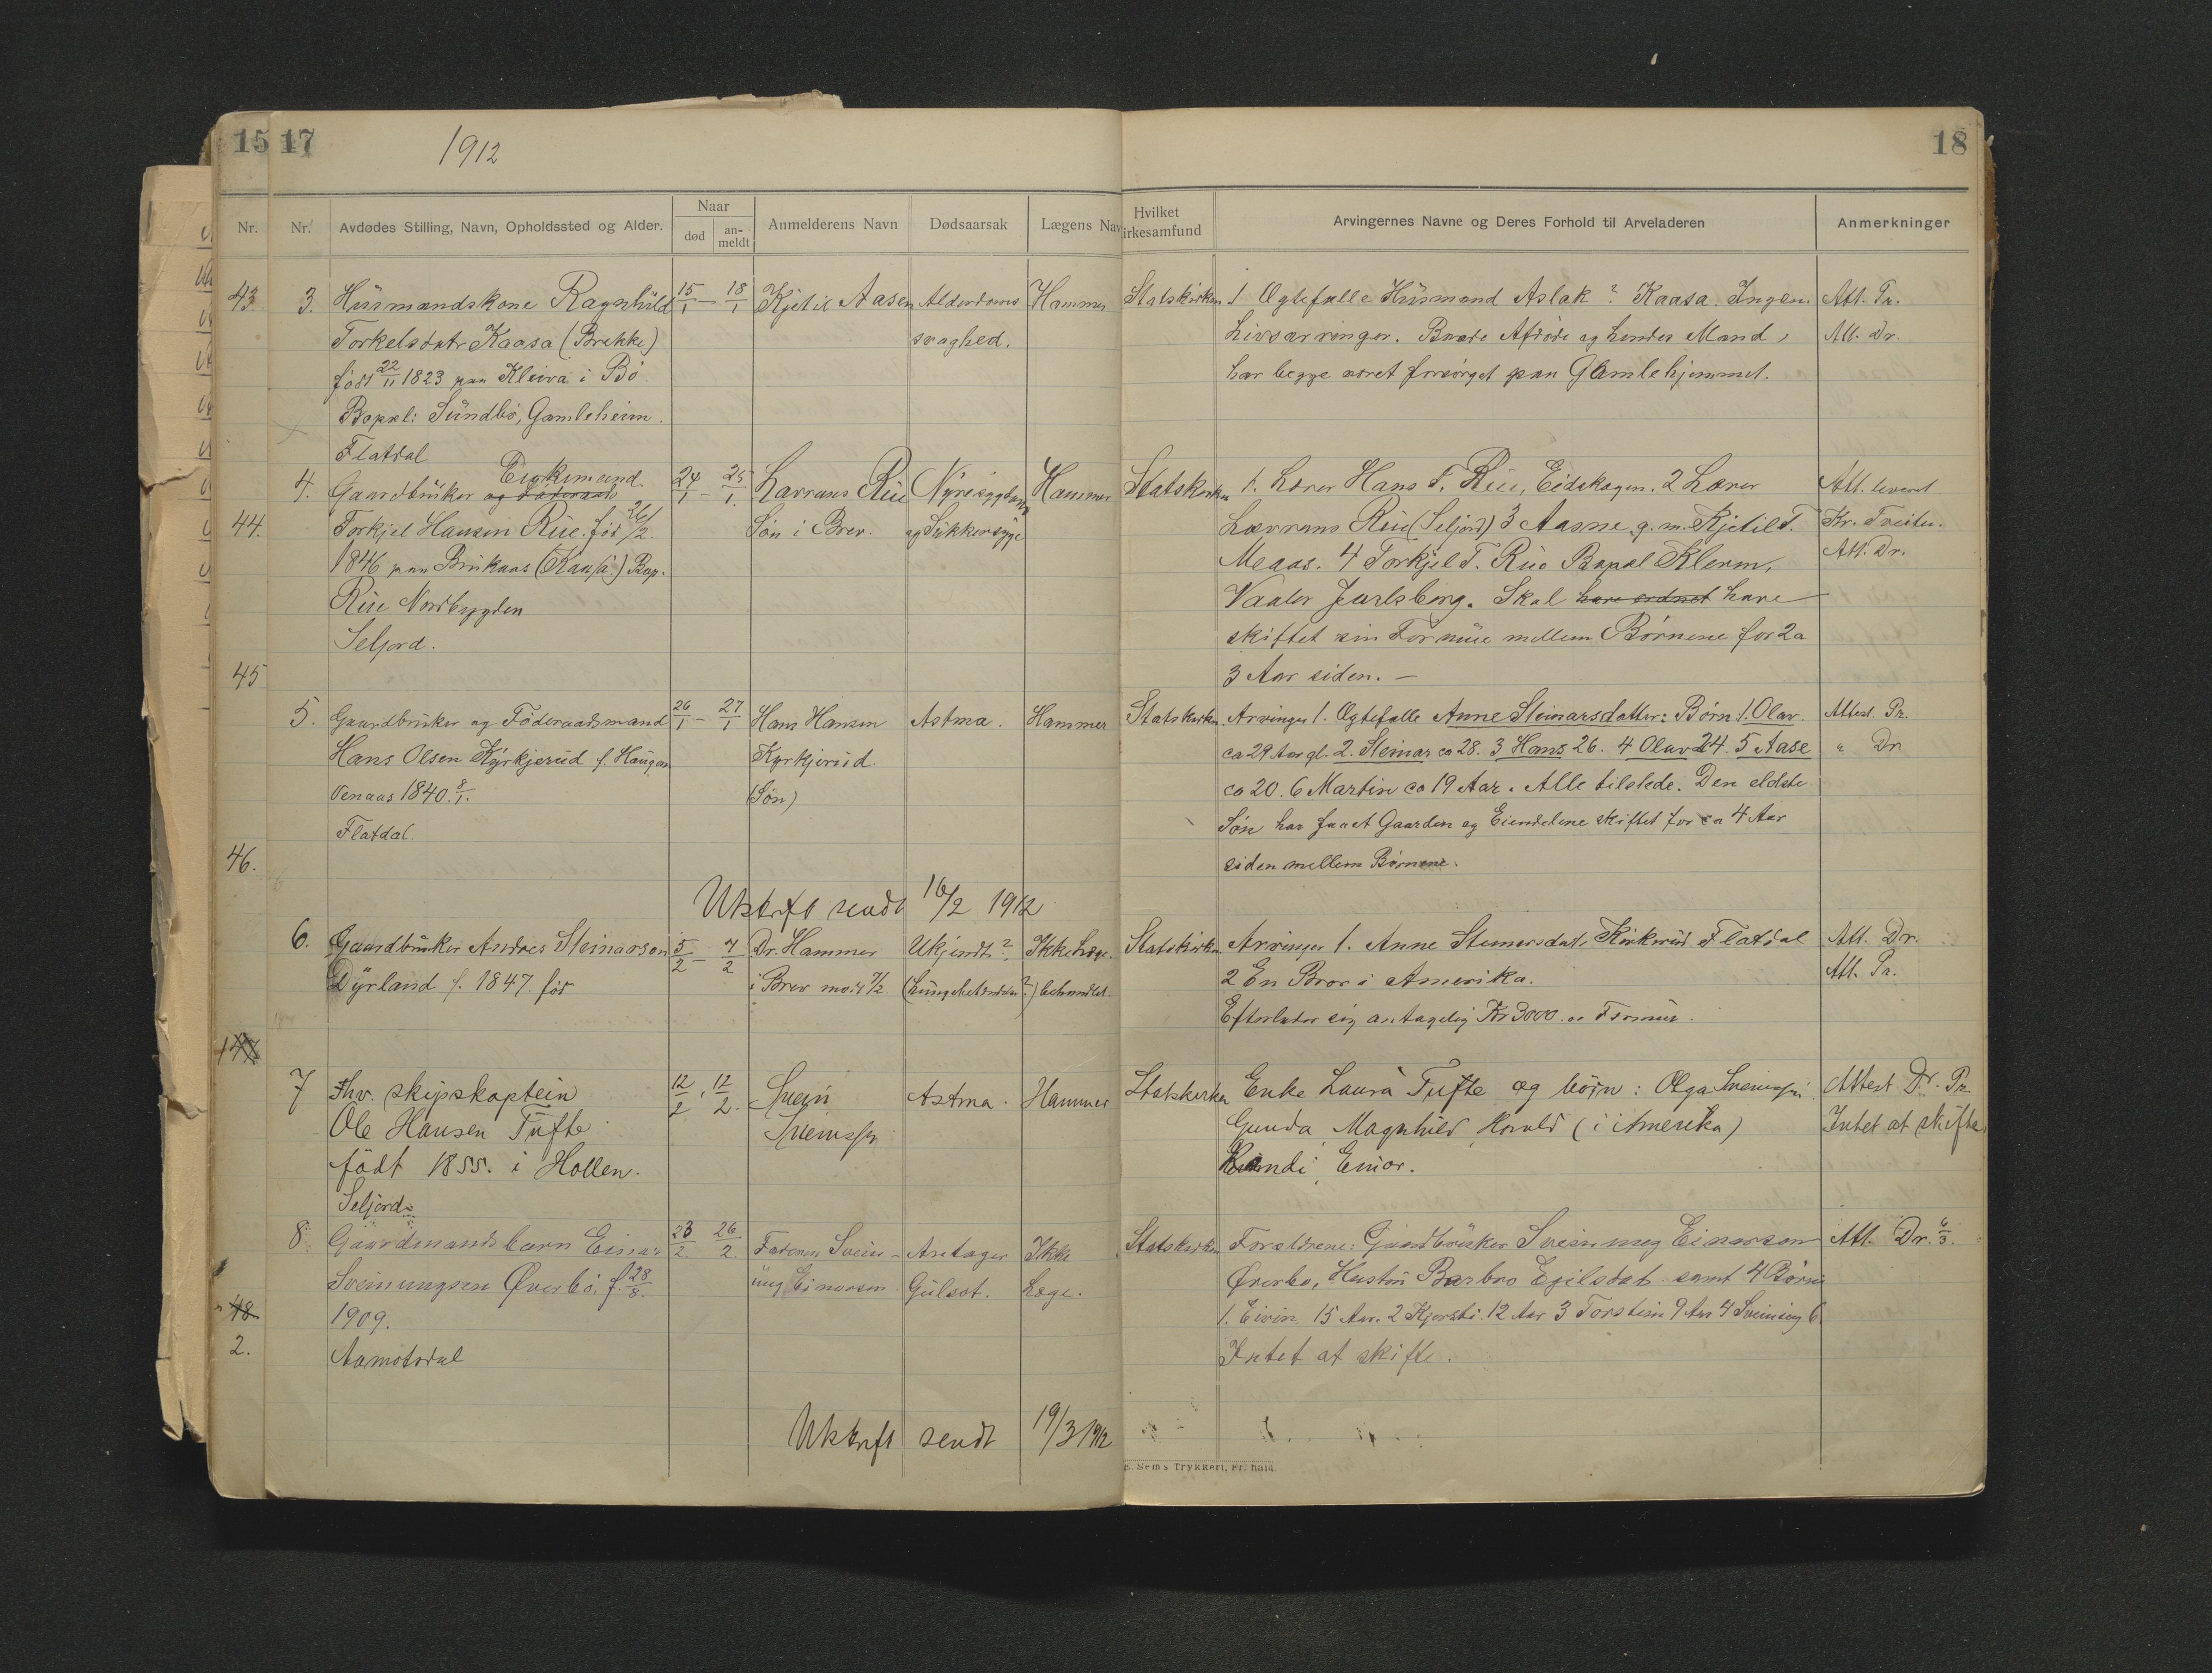 15 17
1912
18
Nr.
Nr.
Avdødes Stilling, Navn, Opholdssted og Alder.
Naar
død
an-
meldt
Anmelderens Navn
Dødsaarsak
Lægens Nav
Hvilket
irkesamfund
Arvingernes Navne og Deres Forhold til Arveladeren
Anmerkninger
43.
3. Husmandskone Ragnhild
Torkelsdatr Kaasa (Brekke)
født 22/11 1823 paa Kleiva i Bö
Bopæl: Sundbö, Gamleheim.
Flatdal
15/1 — 18/1
Kjetil Aasen
Alderdoms
svaghed.
Hammer
Statskirken
1 Ægtefælle Husmand Aslak ? Kaasa. Ingen
Livsarvinger. Baade Afdöde og hendes Mand,
har begge været forsörget paa Gamlehjemmet.
Att. Pr.
Att. Dr.
44.
4. Gaardbruker og Enkemand.
Torkjel Hansen Rue. föd 26/2
1846 paa Brukaas Bop.
Rue Nordbygden
Seljord.
24/1 — 25/1.
Lavrans Rue
Sön i Brev.
Nyresygdom
og Sukkersyge
Hammer
Statskirken
1. Lærer Hans T. Rue, Eidskogen. 2 Lærer
Lavrans Rue (Seljord) 3 Aasne g. m. Kjetil T.
Meaas. 4 Torkjel T. Rue Bopæl Klerm,
Vaaler Jarlsberg. Skal have ordnet have
skiftet sin Formue mellem Börnene for 2 a
3 Aar siden. —
Att. leveret
Kr. Tveiten.
Att. Dr.
45
5. Gaardbruker og Föderaadsmand
Hans Olsen Kyrkjerud f. Haugan
1840. 8/1.
Flatdal.
26/1 — 27/1
Hans Hansen
Kyrkjerud.
(Sön)
Astma.
Hammer
Statskirken.
Arvinger 1. Ægtefælle Anne Steinarsdatter: Börn 1. Olav.
ca 29 Aar gl. 2. Steinar ca 28. 3 Hans 26. 4 Olav 24. 5 Aase
ca 20. 6 Martin ca 19 Aar. Alle tilstede. Den eldste
Sön har faaet Gaarden og Eiendelene skiftet for ca 4 Aar
siden mellem Börnene.
Attest Pr.
" Dr
46.
Utskrift sendt 16/2 1912
6. Gaardbruker Andres Steinarson
Dyrland f. 1847. föd
5/2 — 7/2
Dr. Hammer
i Brev 7/2.
Ukjendt?,
(Lungebetændelse?)
Ikke Læge.
behandlet.
Statskirken
Arvinger 1. Anne Steinarsdat. Kirkerud Flatdal
2 En Bror i Amerika.
Efterlader sig antagelig Kr 3000.00 Formue.
Att. Dr.
Att. Pr.
7 Fhv. skipskaptein
Ole Hansen Tufte
födt 1855. i Hollen.
Seljord.
12/2. 12/2.
Svein
Sveinssen
Astma.
Hammer
Statskirken
Enke Laura Tufte og börn: Olga Sveinssen
Gunda, Magnhild, Harald (i Amerika)
Randi, Einar.
Attest Dr. Pr
Intet at skifte
8. Gaardmandsbarn Einar
Sveinungsen Överbö. f. 28/8.
1909.
Aamotsdal
23/2. 26/2.
Faderen Svein-
ung Einarsen
Antager
Gulsot.
Ikke
Læge.
Statskirken
Forældrene: Gaardbruker Sveinung Einarson
Överbö, Hustru Barbro Egilsdat. samt 4 Börn
1. Eivin 15 Aar. 2 Kjersti 12 Aar 3 Torstein 9 Aar 4 Sveinung 6
Intet at skifte.
Att. Dr. 6/3.
48
2.
Utskrift sendt 19/3 1912
Sems Trykkeri, Fr.hald.